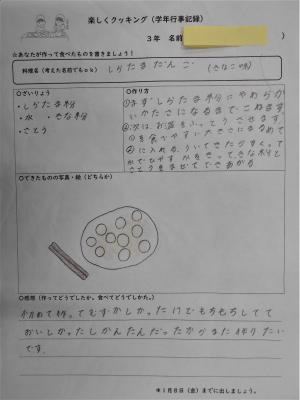 楽しくクッキング（学年行事記録）
3年 名前
）
☆あなたが作って食べたものを書きましょう！
料理名（考えた名前でもok）しらたまだんご（きなこ味）
○ざいりょう
・しらたま粉
・水 ・きな粉
・さとう
○作り方
①まずしらたま粉にやわらか
いかたさになるまでこねます
②次はお湯をふっとうさせます。
①を食べやすい大きさにまるめて
②に入れる
とうをまぜてできあがる
○できたものの写真・絵（どちらか）
○感想（作ってどうでしたか。食べてどうでしたか。）
初めて作ってむずかしかったけどもちもちしてて
おいしかったしかんたんだったからまた作りたい
です。
＊1月8日（金）までに出しましょう。